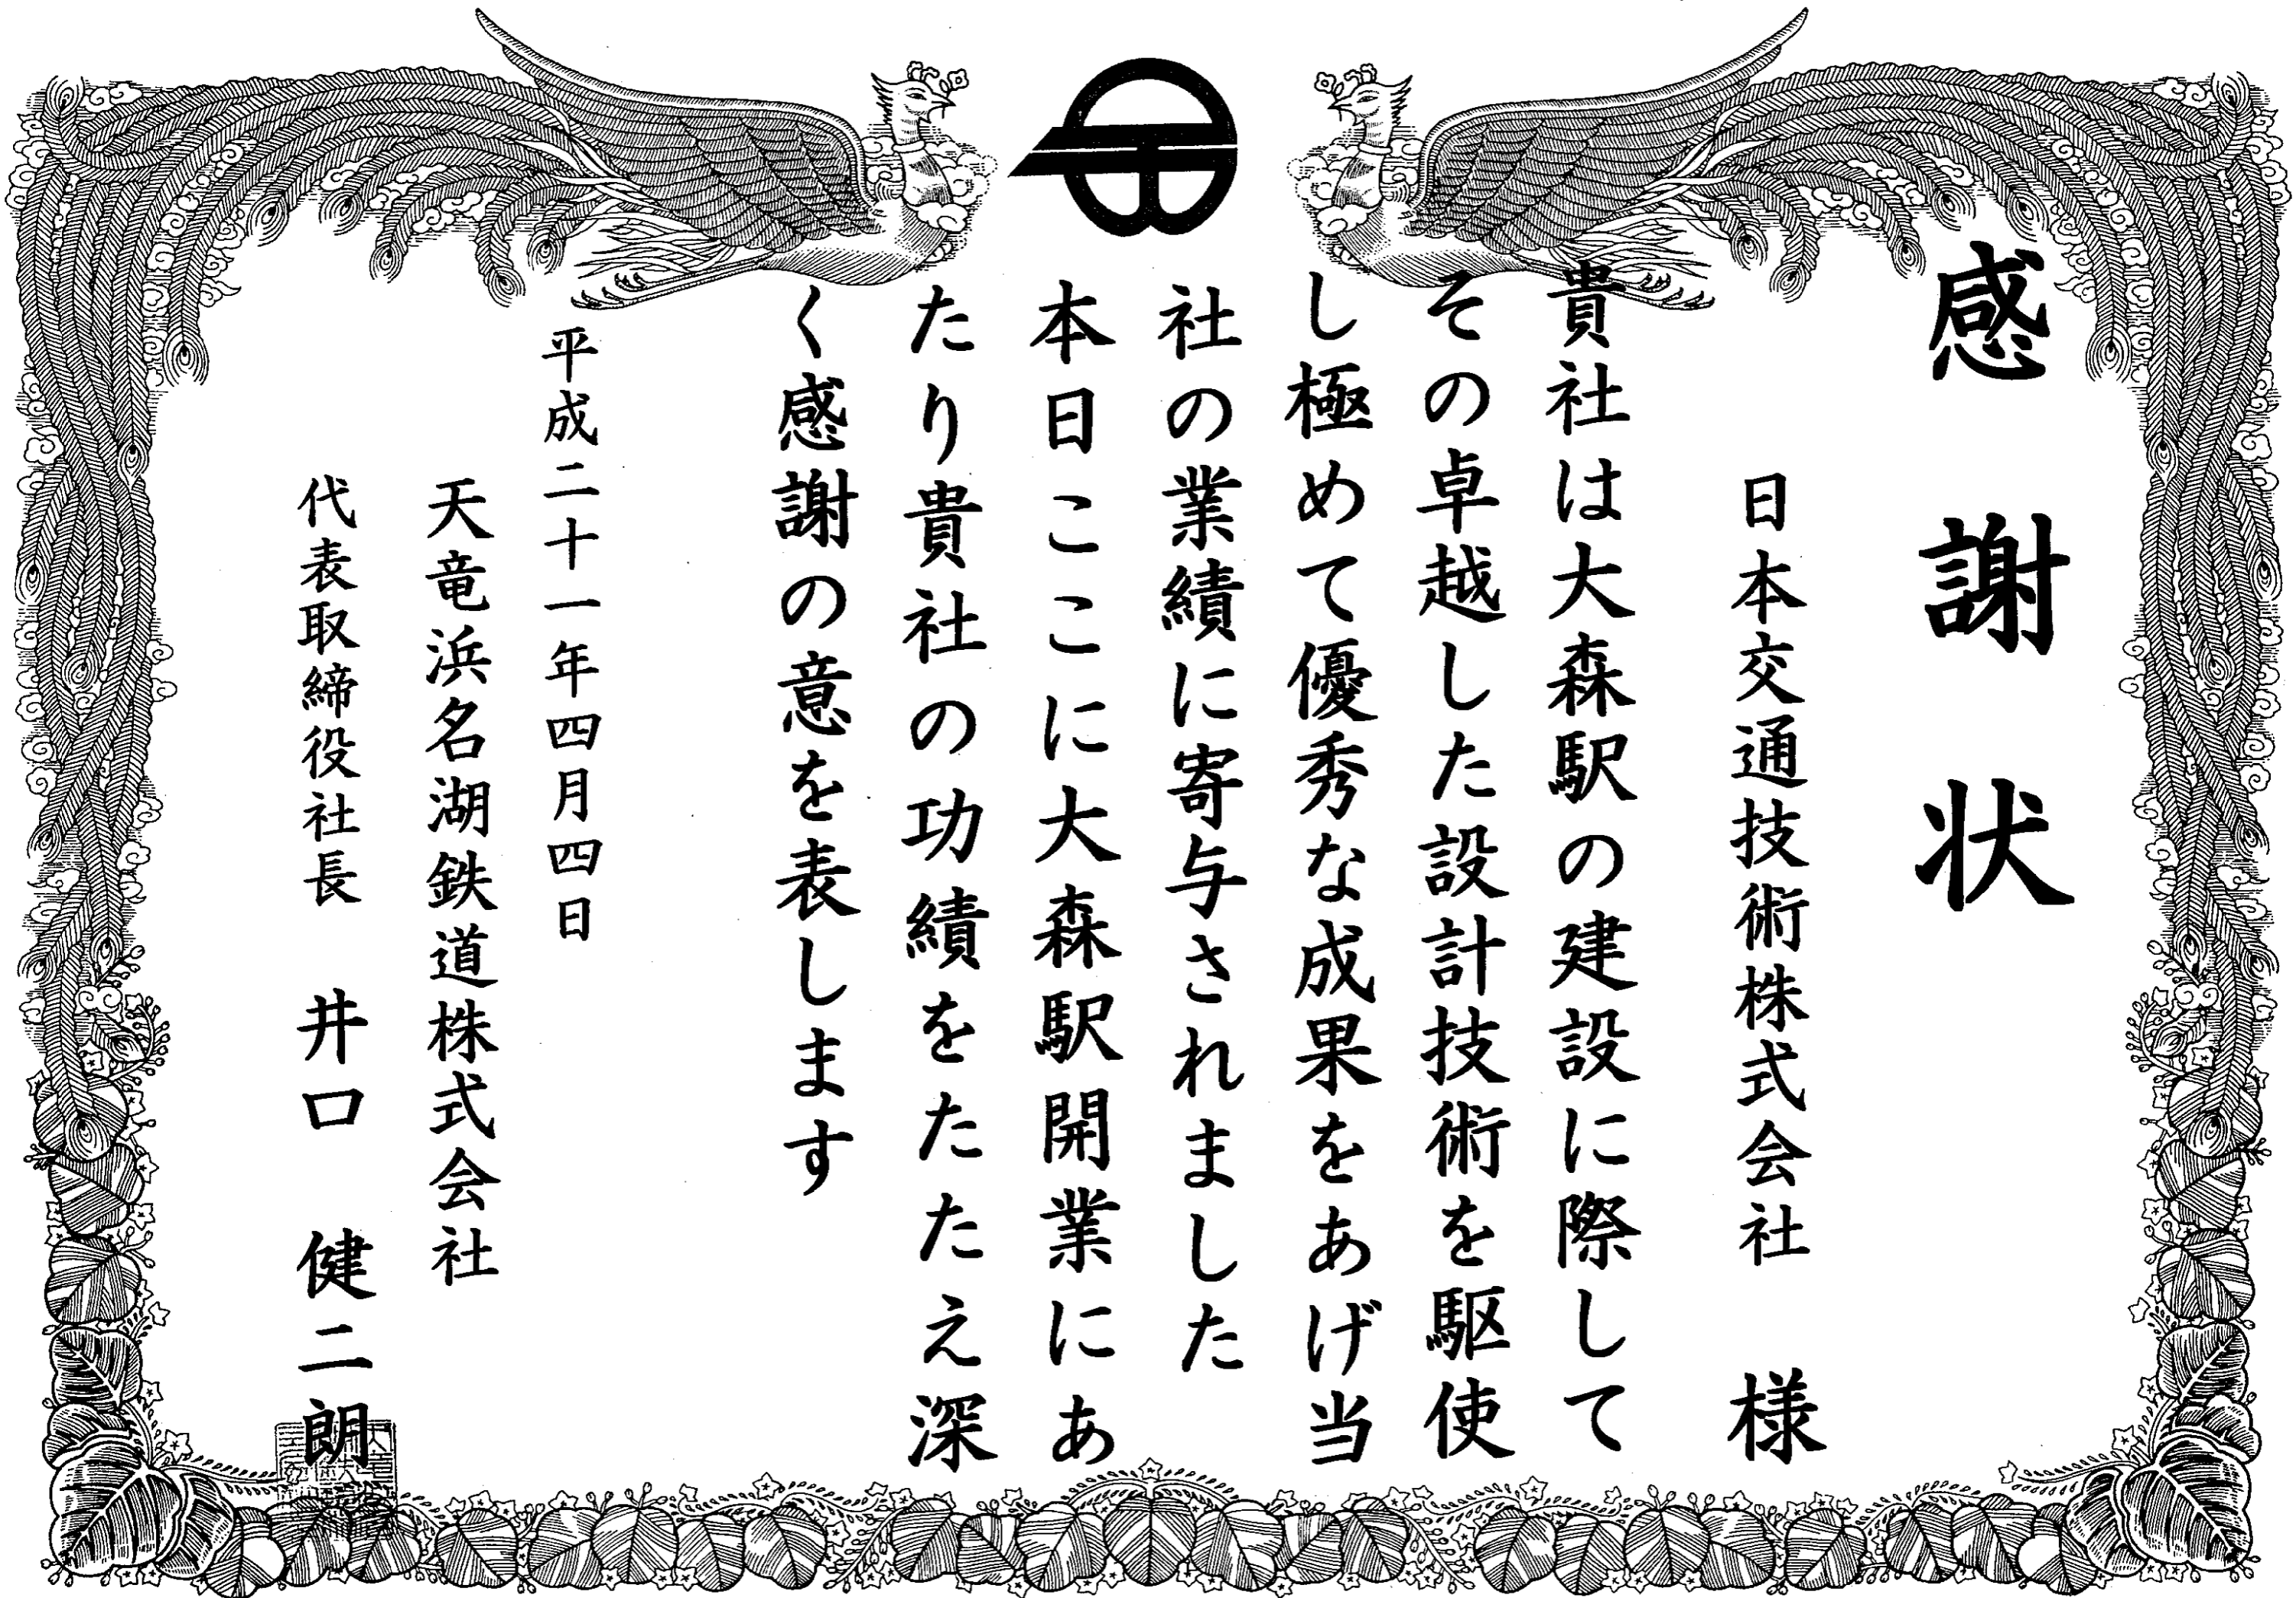 感謝状
日本交通技術株式会社 様
貴社は大森駅の建設に際して
その卓越した設計技術を駆使
し極めて優秀な成果をあげ当
社の業績に寄与されました
本日ここに大森駅開業にあ
たり貴社の功績をたたえ深
く感謝の意を表します
平成二十一年四月四日
天竜浜名湖鉄道株式会社
代表取締役社長 井口 健二朗